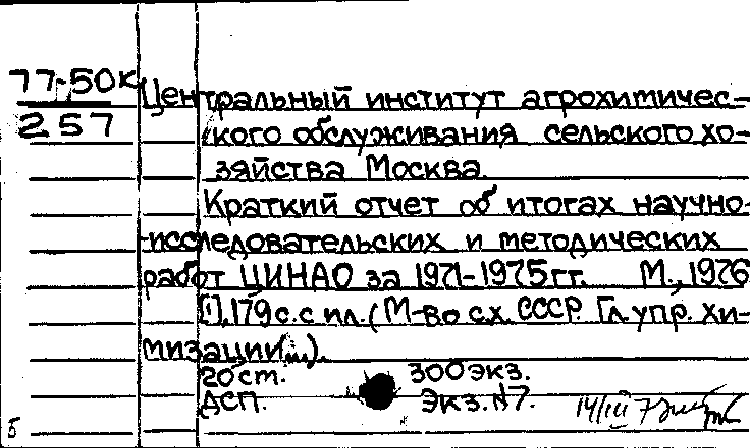 77-50к
257
Центральный институт агрохимичес-
кого обслуживания сельского хо-
зяйства Москва.
Краткий отчет об итогах научно-
исследовательских и методических
работ ЦИНАО за 1971-1975гг. М., 1976
[1], 179 с. с ил. (М-во с.х. СССР. Гл. упр. хи-
мизации).
20 ст. 300 экз.
ДСП. Экз. №7.
14/III
Б